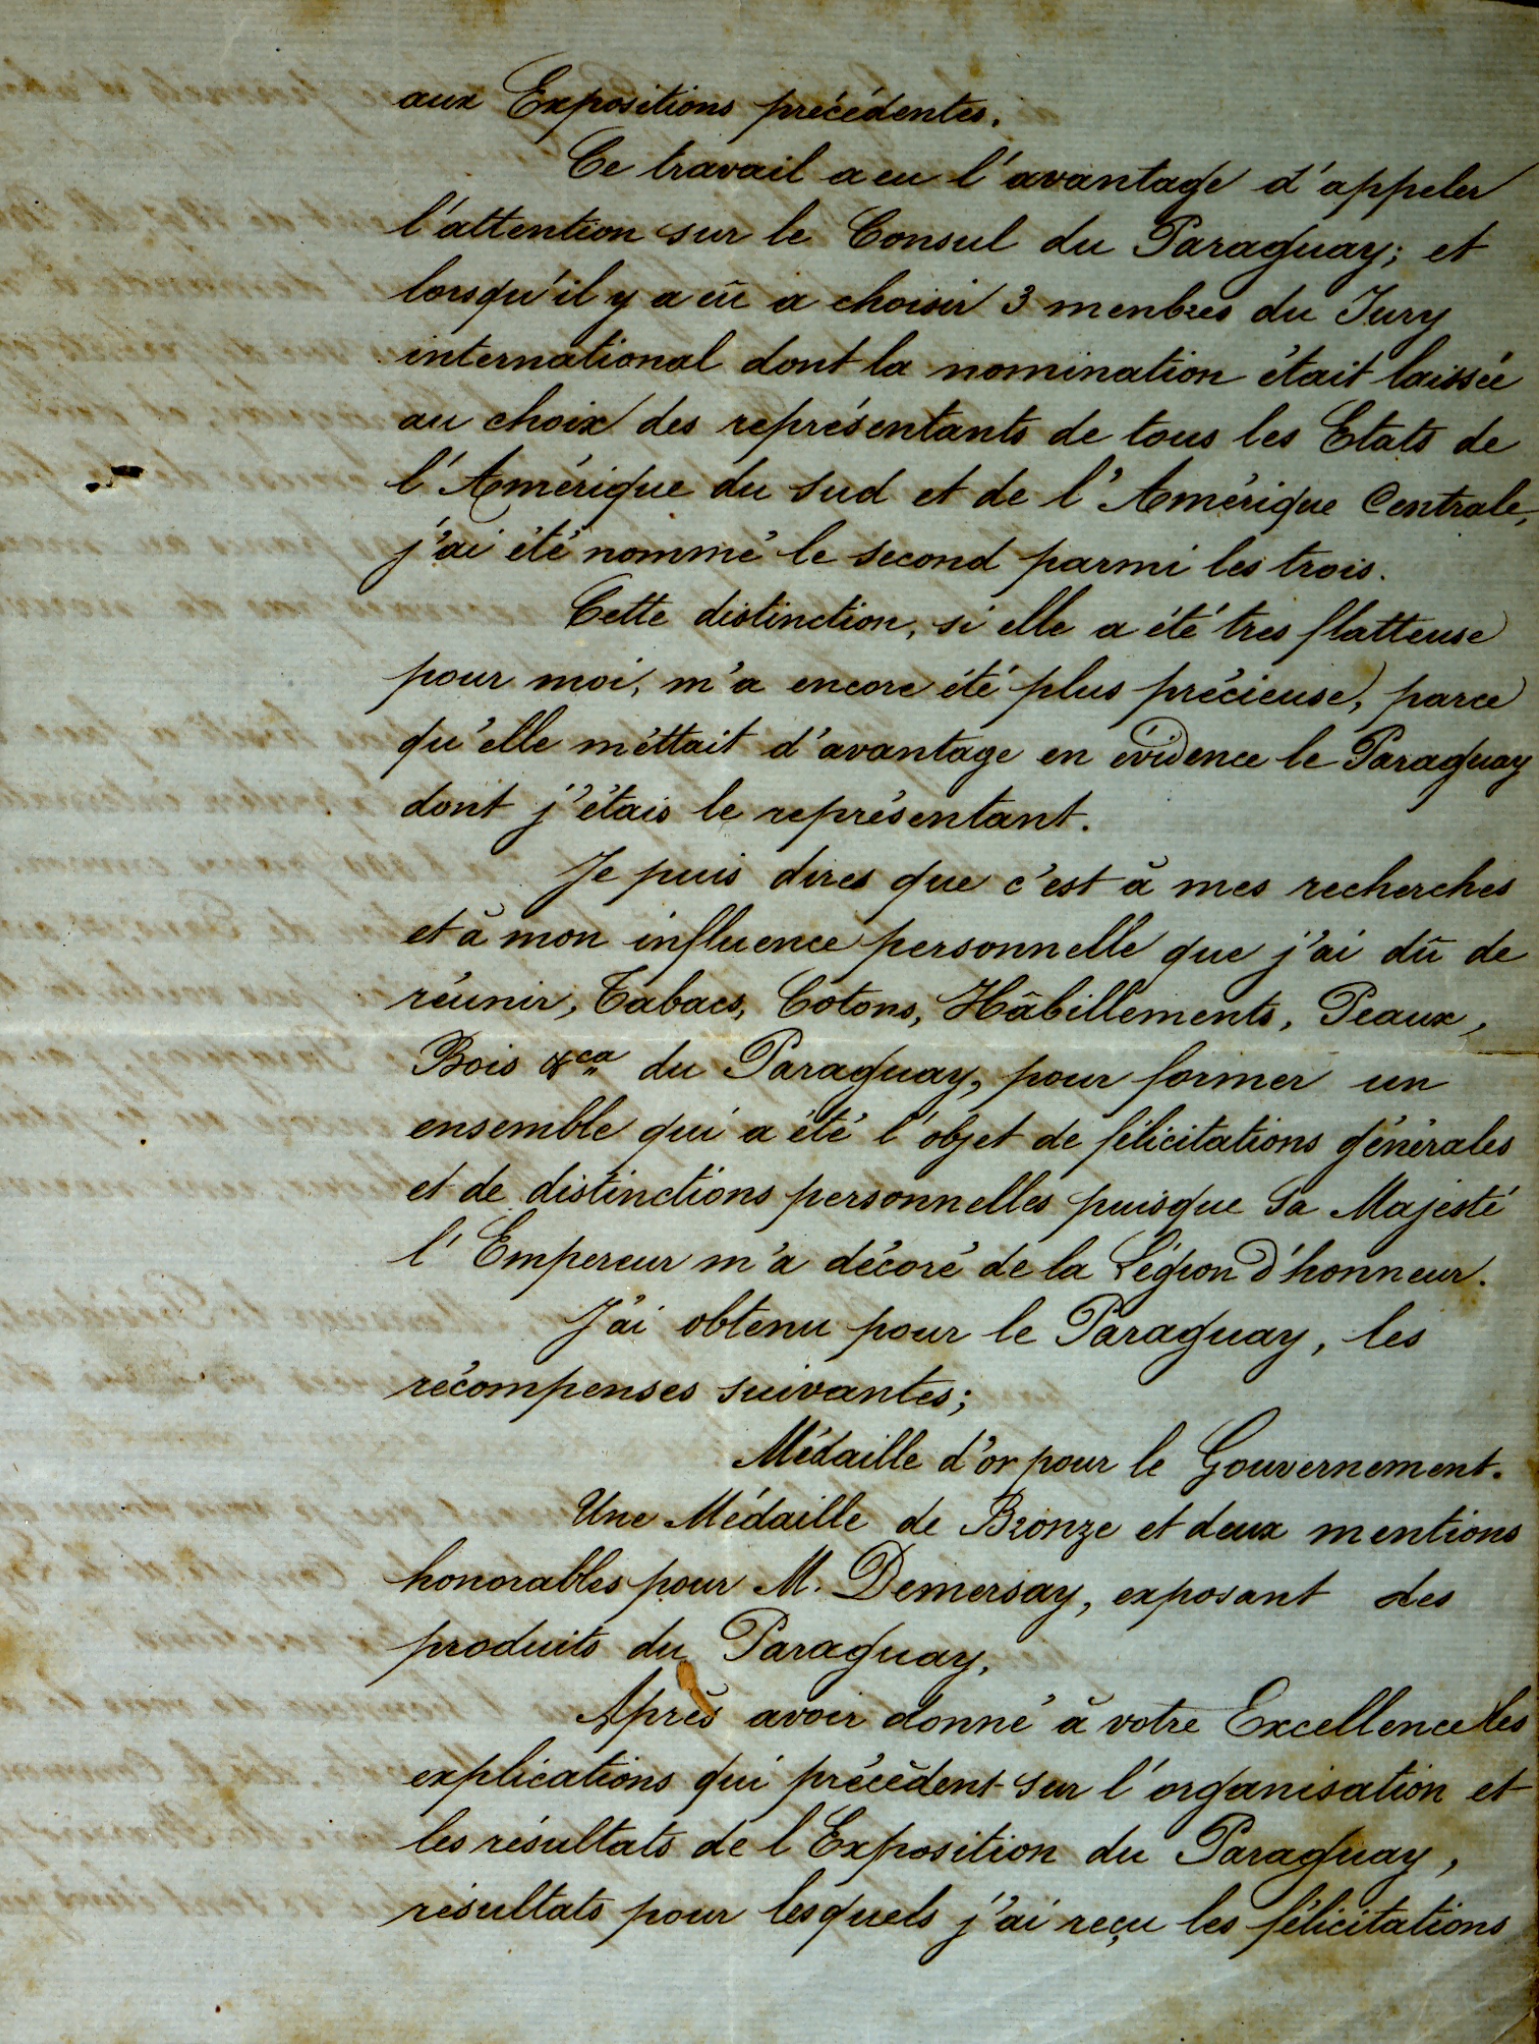 aux Expositions précédentes.
Ce travail a eu l'avantage d'appeler
l'attention sur le Consul du Paraguay; et
lorsqu'il y a eû a choisir 3 menbres du Jury
international dont la nomination était laissée
au choix des représentants de tous les Etats de
l'Amérique du Sud et de l'Amérique Centrale,
j'ai été nommé le second parmi les trois.
Cette distinction, si elle a été tres flatteuse
pour moi, m'a encore été plus précieuse, parce
qu'elle méttait d'avantage en évidence le Paraguay
dont j'étais le représentant.
Je puis dires que c'est à mes recherches
et à mon influence personnelle que j'ai dû de
réunir, Tabacs, Cotons, Hâbillements, Peaux,
Bois &ca du Paraguay, pour former un
ensemble qui a été l'objet de félicitations générales
et de distinctions personnelles puisque Sa Majesté
l'Empereur m'a décoré de la Légion d'honneur.
J'ai obtenu pour le Paraguay, les
récompenses suivantes;
Médaille d'or pour le Gouvernement.
Une Médaille de Bronze et deux mentions
honorables pour M. Demersay, exposant des
produits du Paraguay.
Après avoir donné à votre Excellence les
explications qui précèdent sur l'organisation et
les résultats de l'Exposition du Paraguay,
résultats pour lesquels j'ai reçu les félicitations